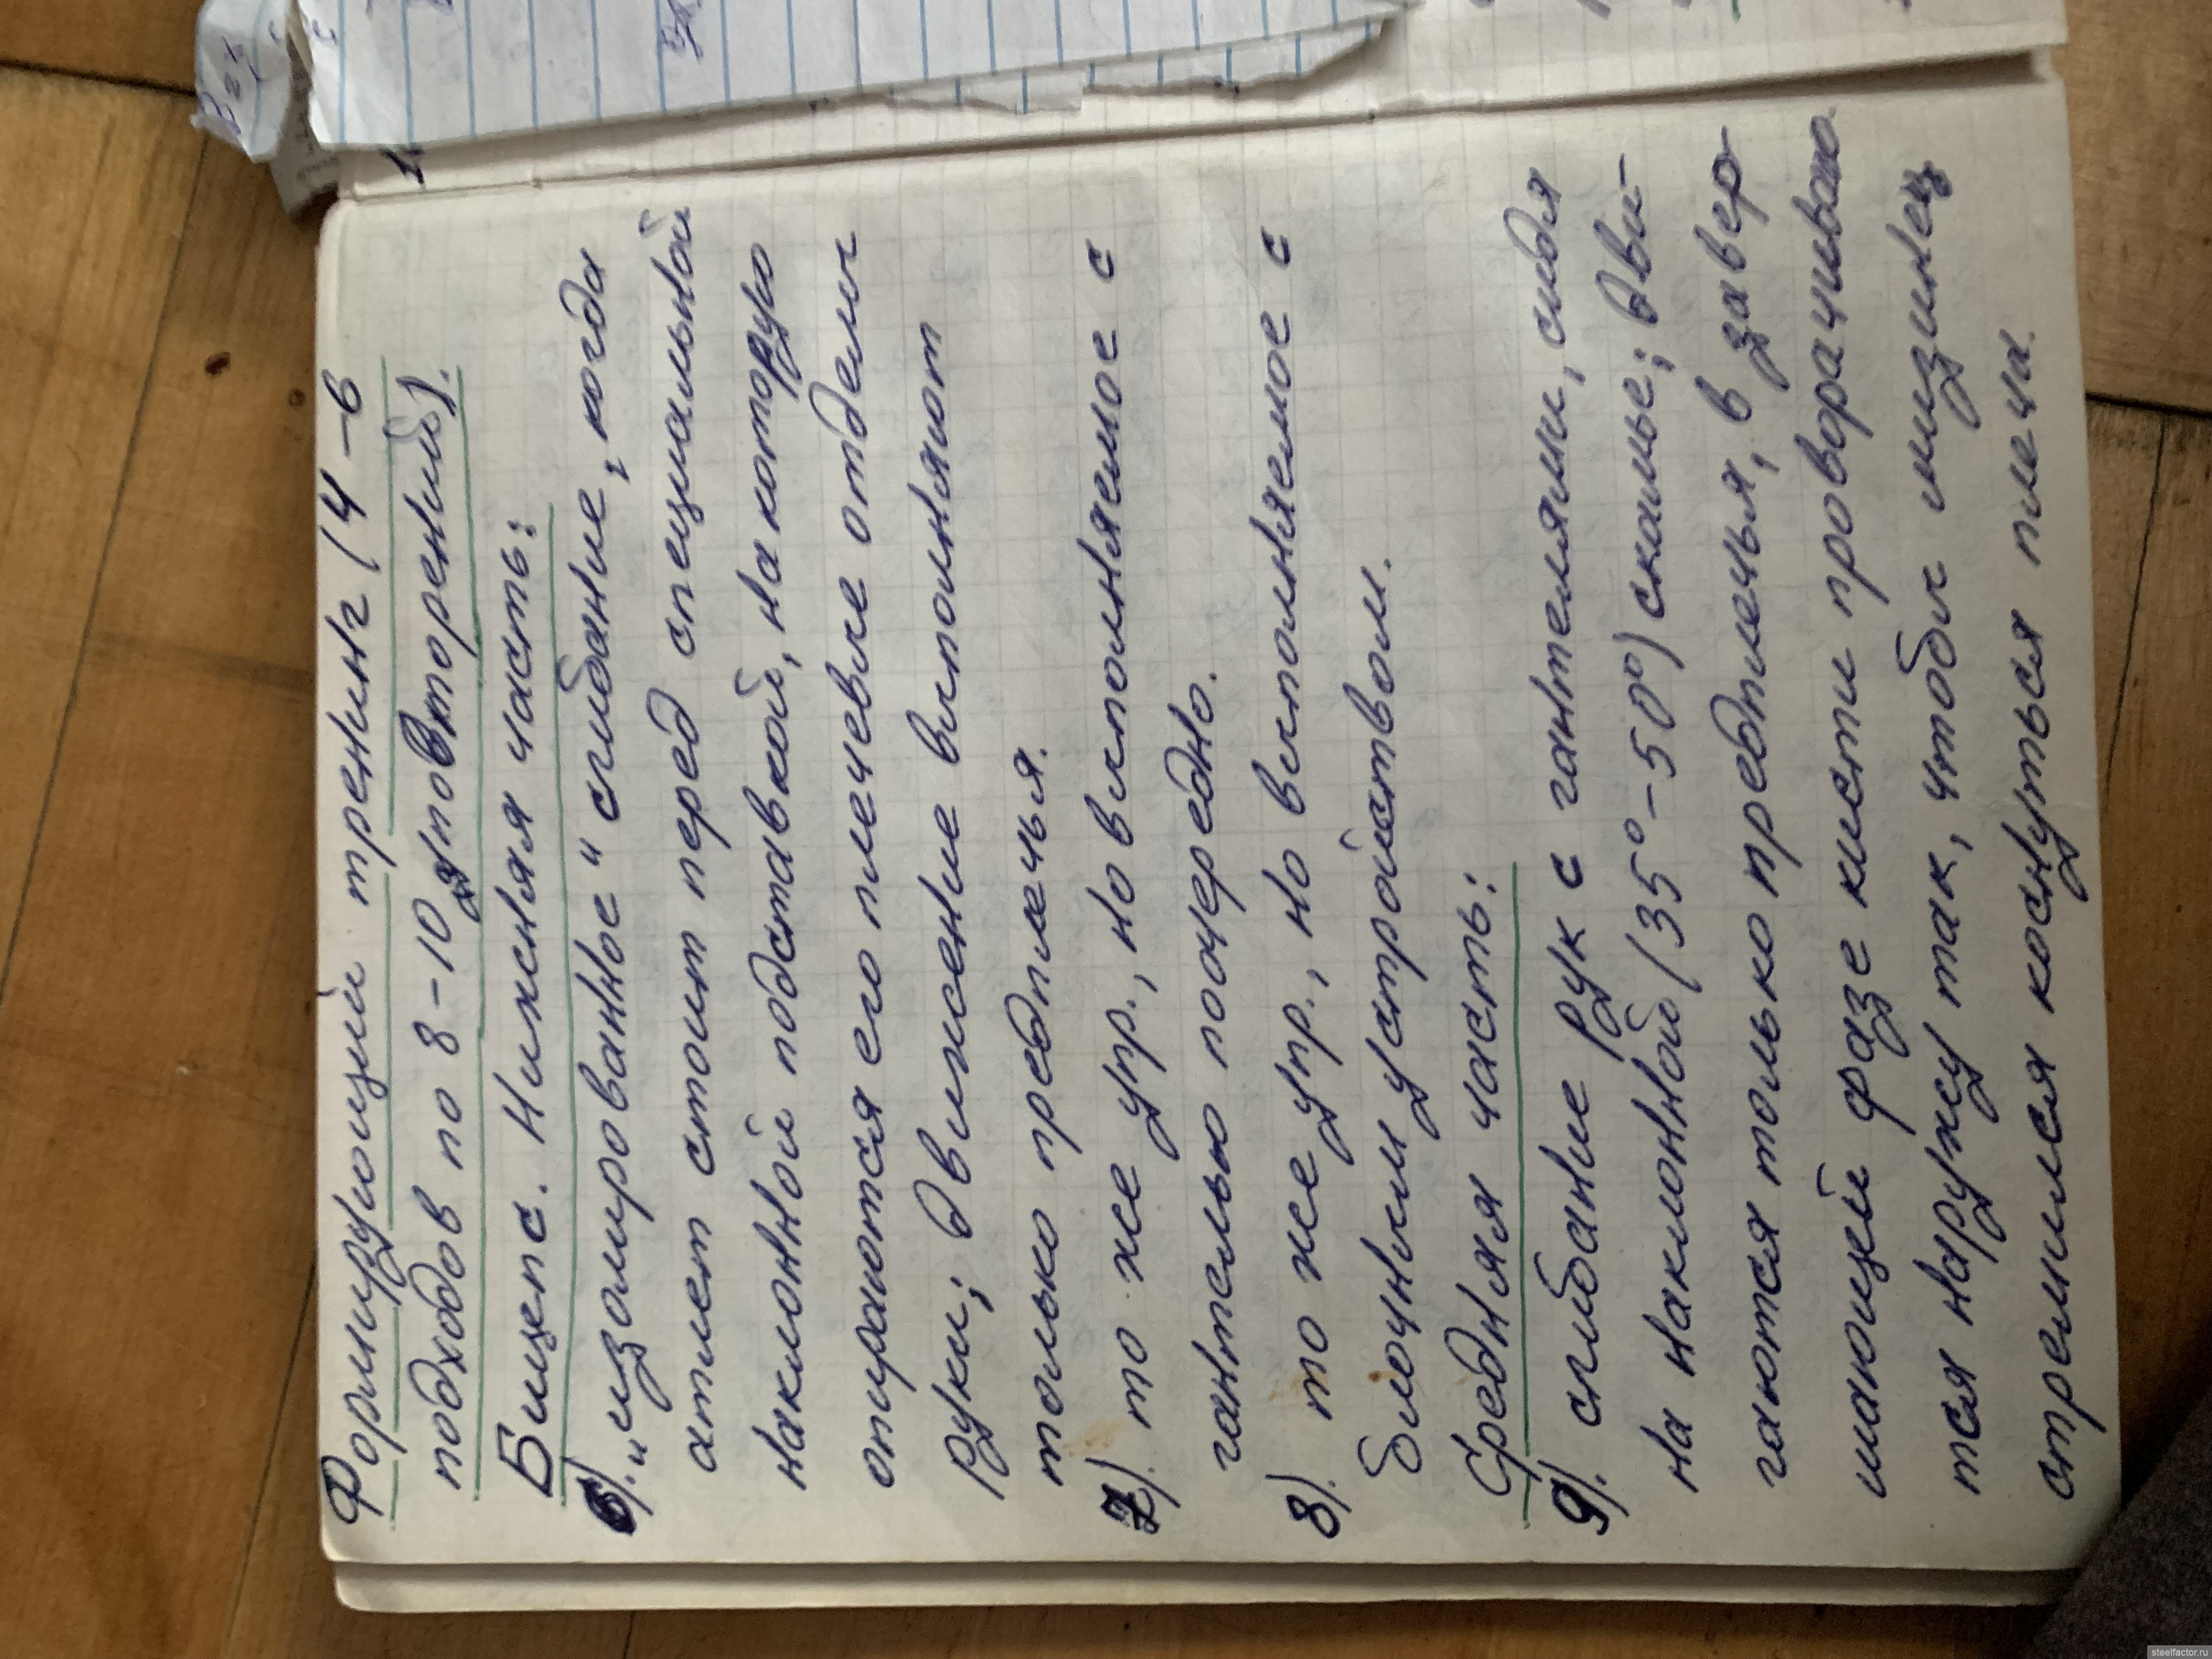 Формирующий тренинг (4-6
подходов по 8-10 повторений).
Бицепс. Нижняя часть:
6). "изолированное" сгибание, когда
атлет стоит перед специальной
наклонной подставкой, на которую
опираются его плечевые отделы
руки; движение выполняют
только предплечья.
7). то же упр., но выполняемое с
гантелью поочередно.
8). то же упр., но выполняемое с
блочным устройством.
Средняя часть:
9). сгибание рук с гантелями, сидя
на наклонной (35°-50°) скамье; дви-
гаются только предплечья, в завер-
шающей фазе кисти проворачиваю
тся наружу так, чтобы мизинец
стремился коснуться плеча.
steelfactor.ru